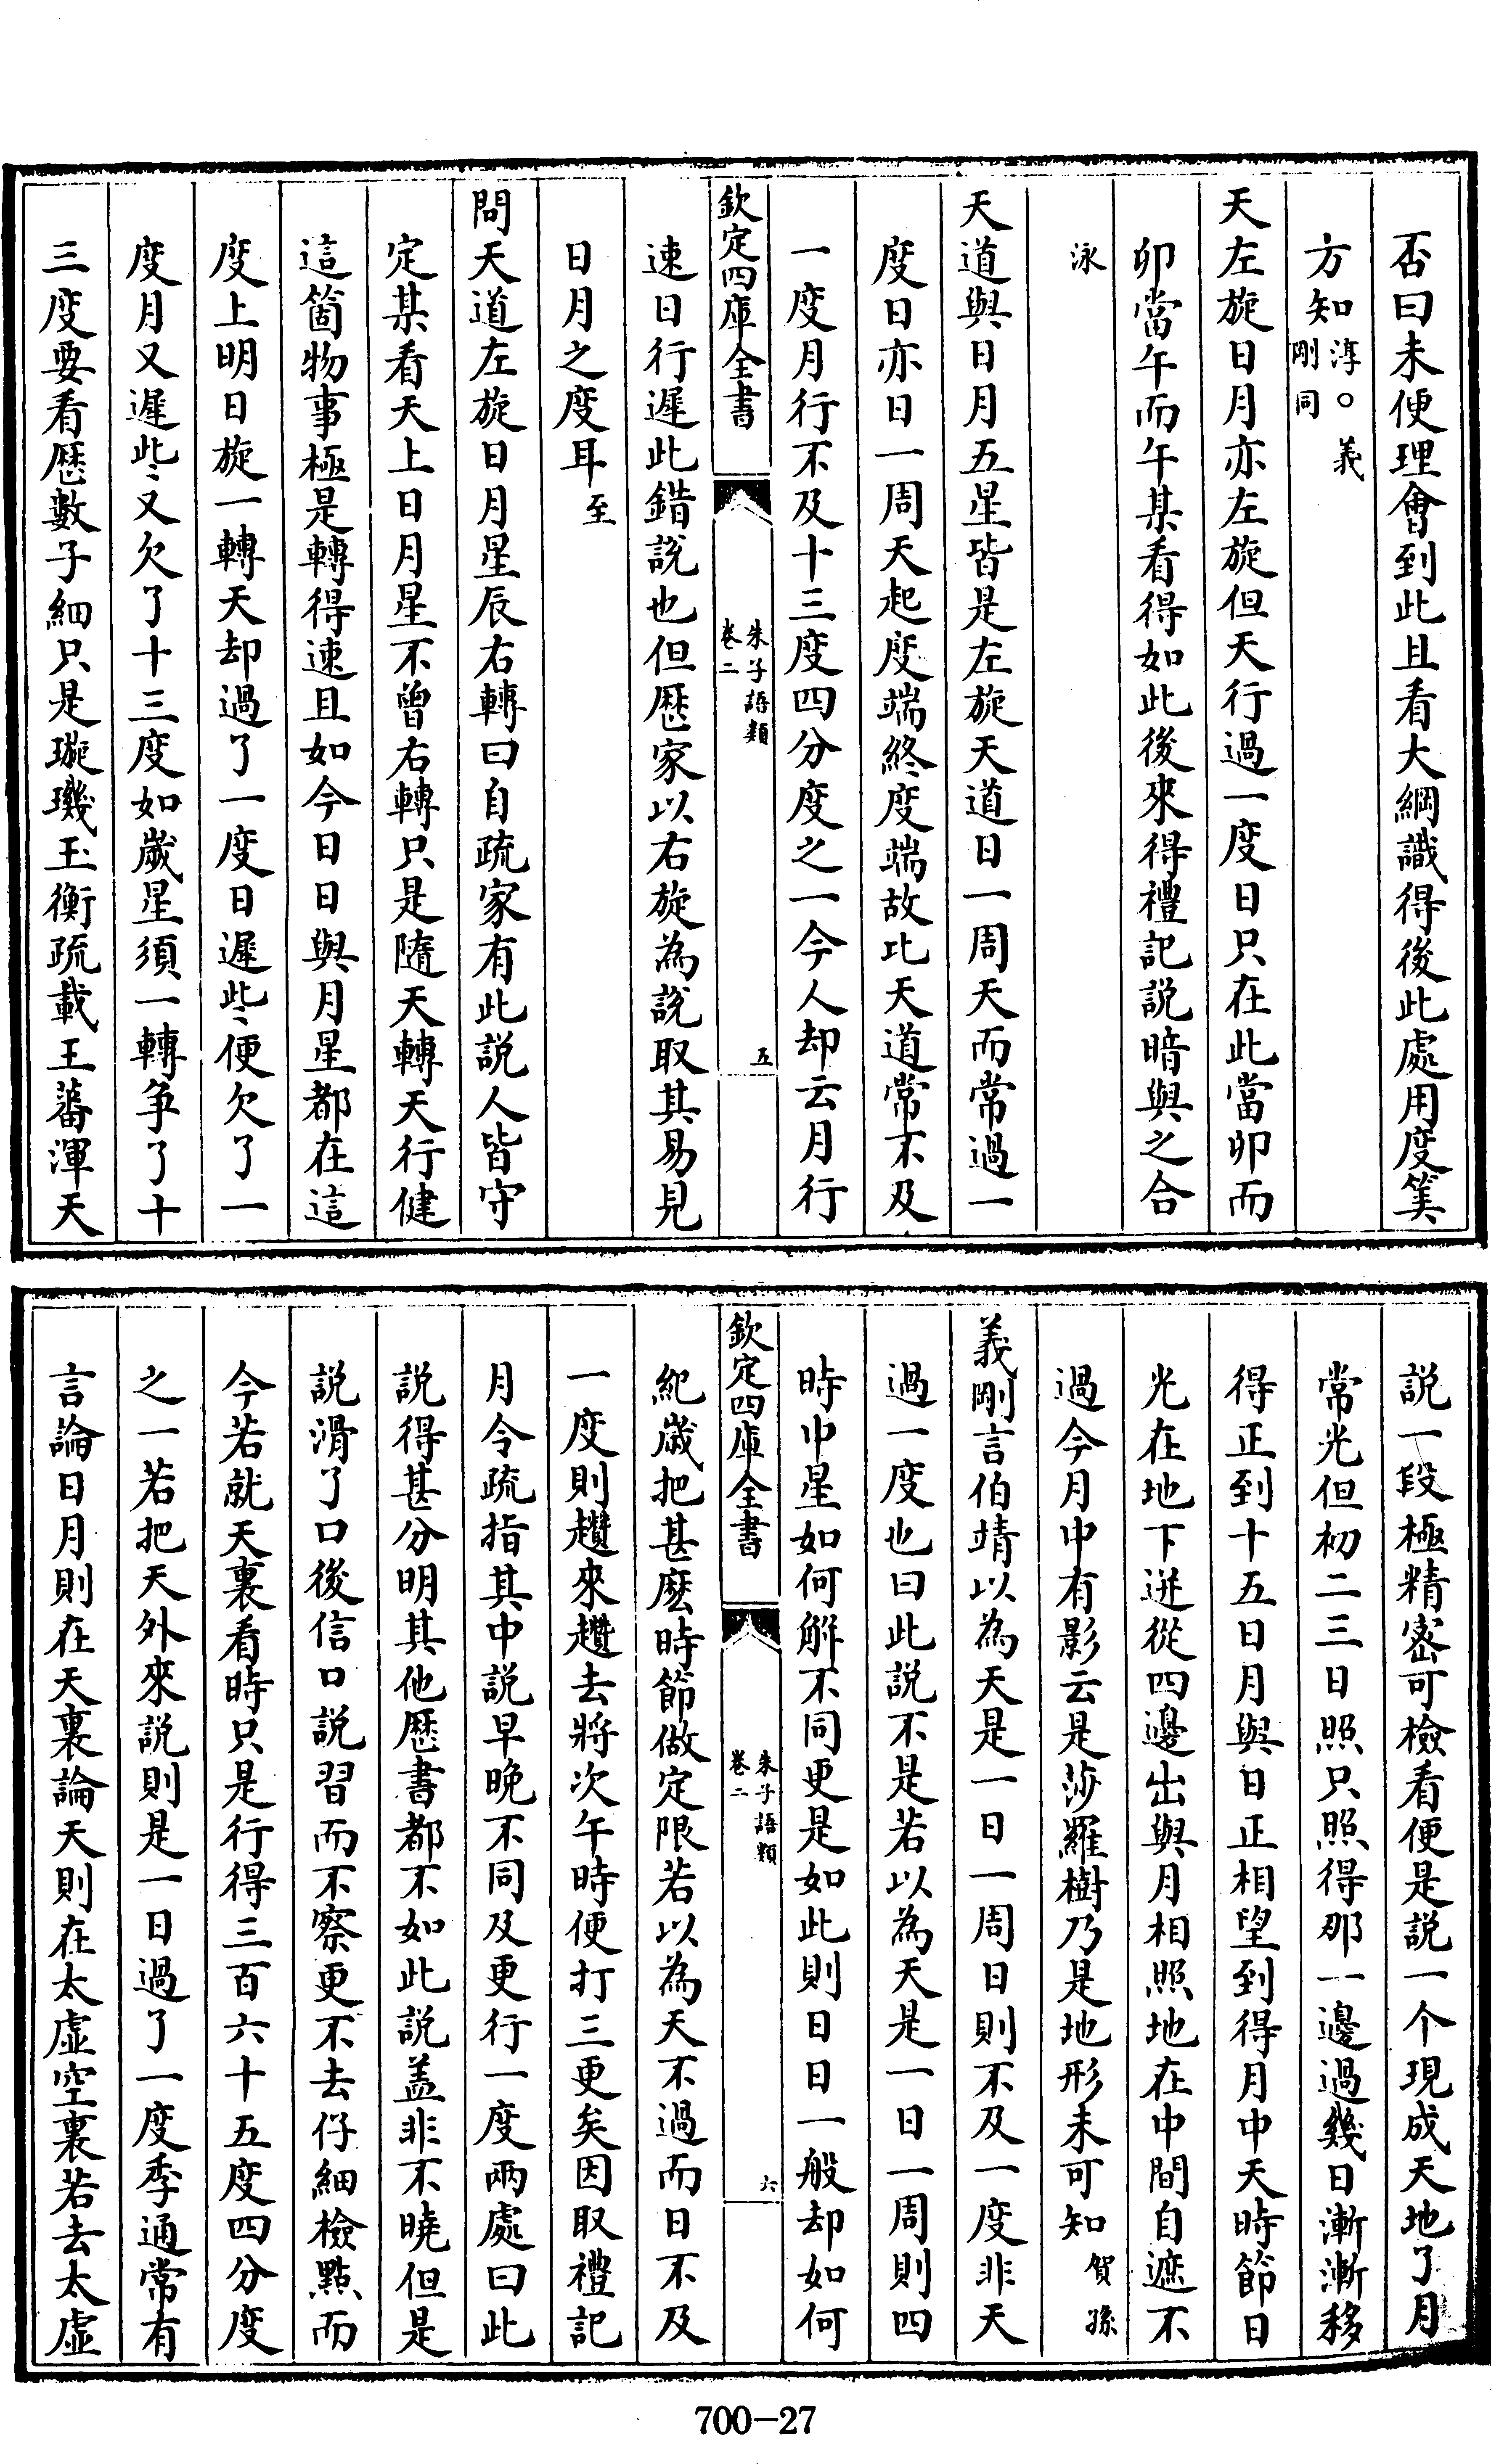 否曰未便理會到此且看大綱識得後此處用度筭
方知淳○義剛同
天左旋日月亦左旋但天行過一度日只在此當卯而
卯當午而午某看得如此後來得禮記説暗與之合
泳
天道與日月五星皆是左旋天道日一周天而常過一
度日亦日一周天起度端終度端故比天道常不及
一度月行不及十三度四分度之一今人却云月行
欽定四庫全書
朱子語類
卷二
五
速日行遲此錯説也但厯家以右旋為説取其易見
日月之度耳至
問天道左旋日月星辰右轉曰自疏家有此説人皆守
定某看天上日月星不曾右轉只是隨天轉天行健
這箇物事極是轉得速且如今日日與月星都在這
度上明日旋一轉天却過了一度日遲些便欠了一
度月又遲些又欠了十三度如歲星須一轉争了十
三度要看厯數子細只是璇璣玉衡疏載王蕃渾天
説一段極精密可檢看便是説一个現成天地了月
常光但初二三日照只照得那一邊過幾日漸漸移
得正到十五日月與日正相望到得月中天時節日
光在地下迸從四邊出與月相照地在中間自遮不
過今月中有影云是莎羅樹乃是地形未可知賀孫
義剛言伯靖以為天是一日一周日則不及一度非天
過一度也曰此説不是若以為天是一日一周則四
時中星如何解不同更是如此則日日一般却如何
欽定四庫全書
朱子語類
卷二
六
紀歲把甚麽時節做定限若以為天不過而日不及
一度則趲來趲去將次午時便打三更矣因取禮記
月令疏指其中説早晚不同及更行一度兩處曰此
説得甚分明其他厯書都不如此説盖非不曉但是
説滑了口後信口説習而不察更不去仔細檢點而
今若就天裏看時只是行得三百六十五度四分度
之一若把天外來説則是一日過了一度季通常有
言論日月則在天裏論天則在太虛空裏若去太虛
700-27